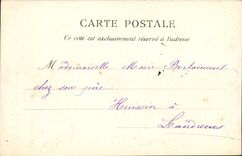 CARTE POSTALE
Ce côté est exclusivement réservé à l'adresse
Mademoiselle Marie Berlaimont
chez son père
Huissier à
Landrecies